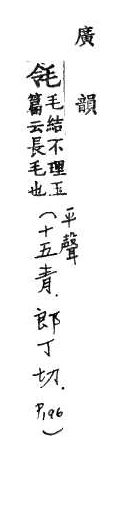 廣韻
毛結不理玉
篇云長毛也
(平聲
十五青.郎丁切.P.196)